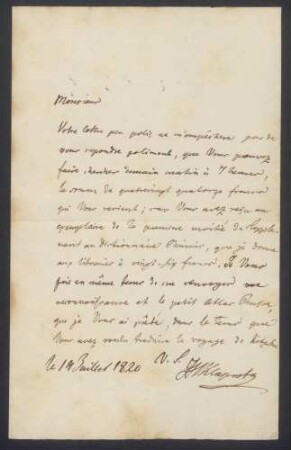 Monsieur
Votre lettre peu polie ne m'empêchera pas de
vous repondre poliment, que Vous pouvez
faire chercher demain matin à 7 heures,
la somme de quatrevingt quatorze francs
qui Vous revient; car Vous avez reçu un
exemplaire de la première moitié du Supplé-
ment au Dictionnaire Chinois, que je donne
aux libraires à vingt-six francs. Je Vous
prie en même tems de me renvoyer ma
et le petit Atlas
que je Vous ai prêté, dans le tems que
Vous avez voulu traduire le voyage de
le 14 Juillet 1820 V. S. JKlaproth